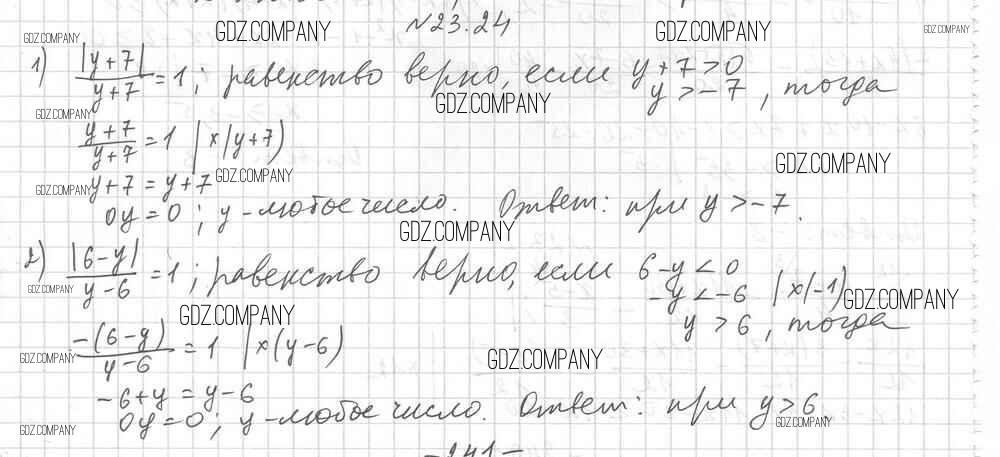 №23.24
GDZ.COMPANY GDZ.COMPANY GDZ.COMPANY GDZ.COMPANY
1) |y+7|/y+7 = 1; равенство верно, если y+7>0
y>-7, тогда
GDZ.COMPANY GDZ.COMPANY
y+7/y+7 = 1 | x(y+7)
GDZ.COMPANY
GDZ.COMPANY y+7 = y+7 GDZ.COMPANY
0y=0; y-любое число. Ответ: при y>-7.
GDZ.COMPANY
2) |6-y|/y-6 = 1; равенство верно, если 6-y<0
GDZ.COMPANY -y<-6 | x(-1) GDZ.COMPANY
y>6, тогда
GDZ.COMPANY
-(6-y)/y-6 = 1 | x(y-6)
GDZ.COMPANY GDZ.COMPANY
-6+y = y-6
0y=0; y-любое число. Ответ: при y>6.
GDZ.COMPANY GDZ.COMPANY
-241-